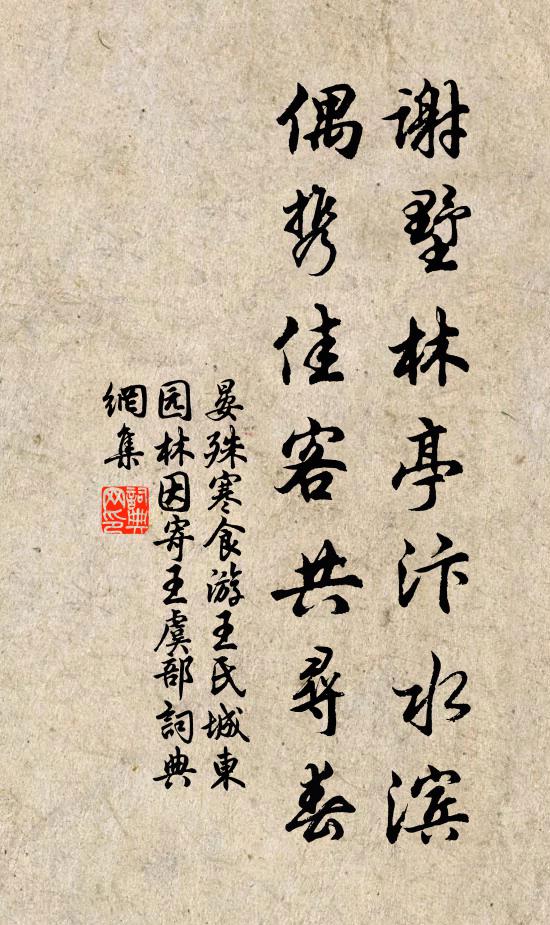 谢墅林亭汴水滨
偶携佳客共寻春
晏殊寒食游王氏城東
园林因寄王虞部詞典
網集
詞典
网印